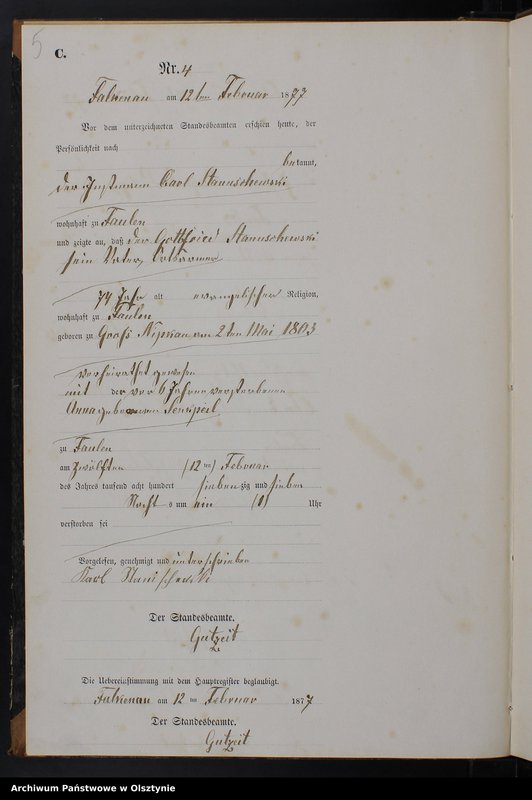 5
C.
Nr. 4
Falkenau am 12 ten Februar 1877
Vor dem unterzeichneten Standesbeamten erschien heute, der
Persönlichkeit nach
bekannt,
der Instmann Carl Stanuschewski
wohnhaft zu Faulen
und zeigte an, daß der Gottfried Stanuschewski
sein Vater, Ortsarmer
74 Jahr alt evangelischer Religion,
wohnhaft zu Faulen
geboren zu Groß Nipkau am 2 ten Mai 1803
verheirathet gewesen
mit der vor 6 Jahren verstorbenen
Anna geborenen
zu Faulen
am zwölften (12 ten) Februar
des Jahres tausend acht hundert siebenzig und sieben
Nachts um ein (1) Uhr
verstorben sei
Vorgelesen, genehmigt und unterschrieben
Karl
Der Standesbeamte.
Gutzeit
Die Uebereinstimmung mit dem Hauptregister beglaubigt.
Falkenau am 12 ten Februar 1877
Der Standesbeamte.
Gutzeit
Archiwum Państwowe w Olsztynie